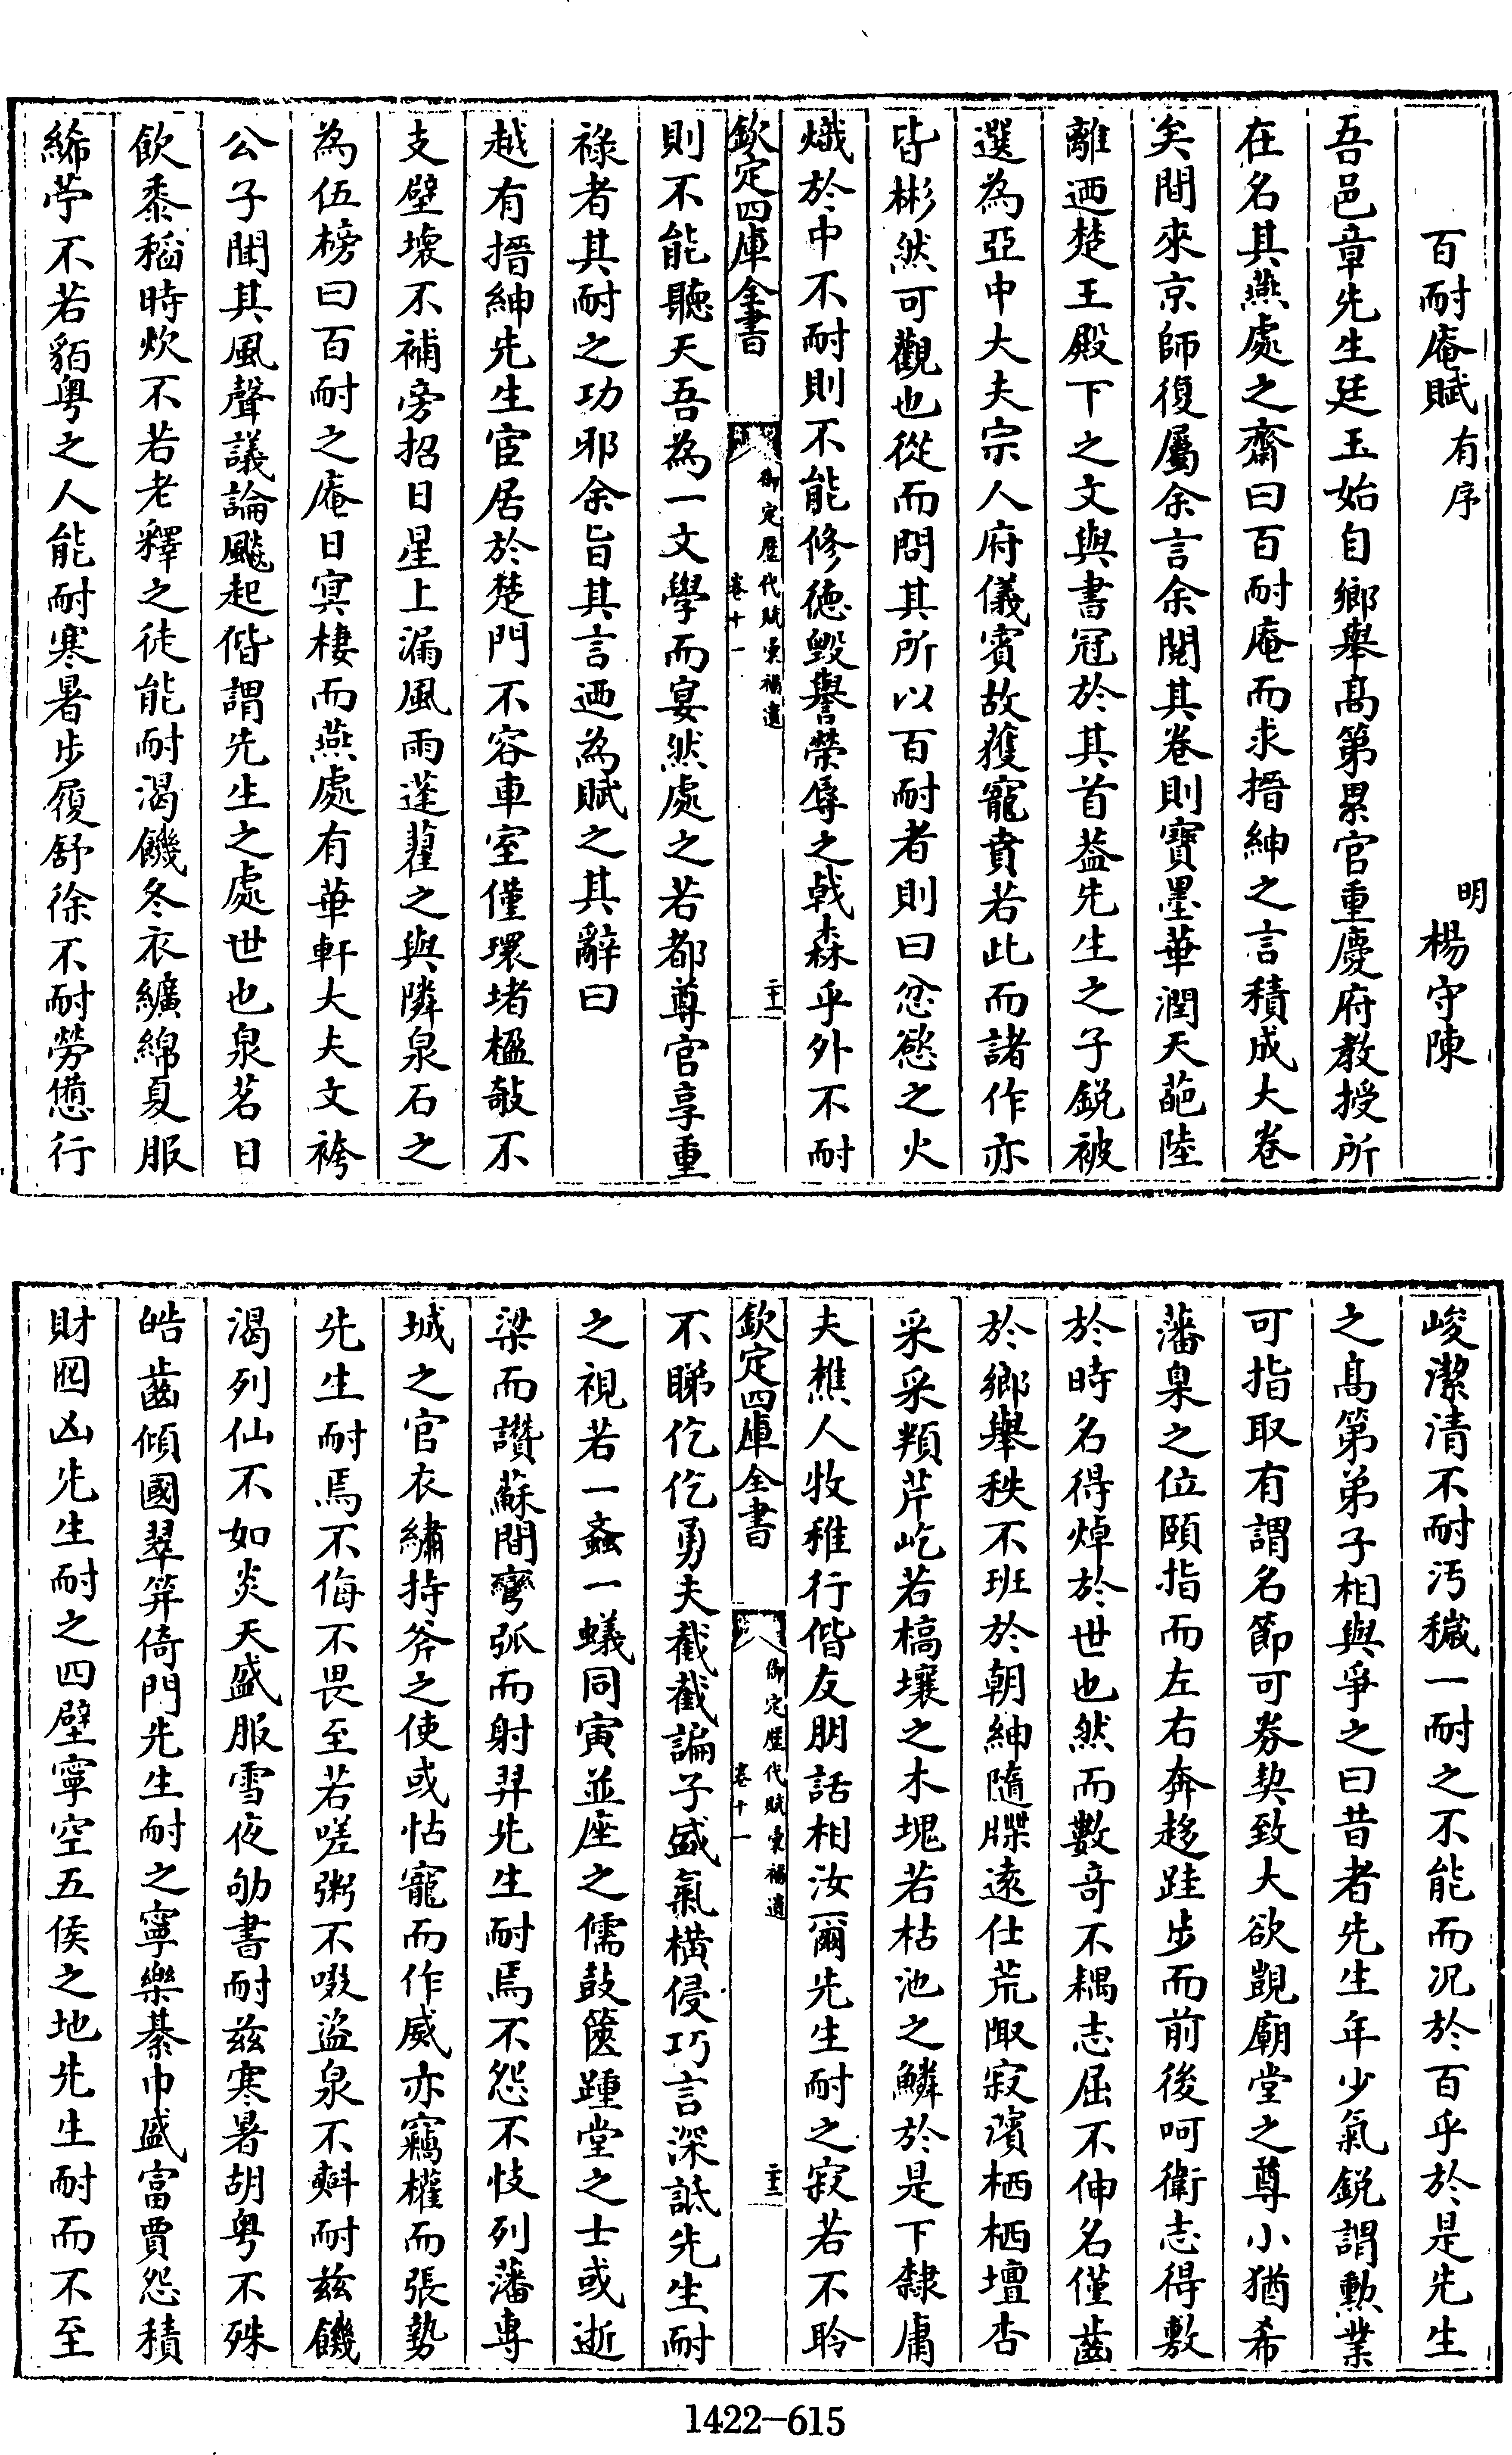 百耐庵賦有序　明楊守陳
吾邑章先生廷玉始自鄉舉髙第累官重慶府教授所
在名其燕處之齋曰百耐庵而求搢紳之言積成大卷
矣間來京師復屬余言余閱其卷則寶墨華潤天葩陸
離迺楚王殿下之文與書冠於其首葢先生之子鋭被
選為亞中大夫宗人府儀賓故獲寵賁若此而諸作亦
皆彬然可觀也從而問其所以百耐者則曰忿慾之火
熾於中不耐則不能修徳毀譽榮辱之戟森乎外不耐
欽定四庫全書
御定歷代賦彙補遺
卷十一
二十一
則不能聽天吾為一文學而宴然處之若都尊官享重
祿者其耐之功邪余旨其言迺為賦之其辭曰
越有搢紳先生宦居於楚門不容車室僅環堵楹敧不
支壁壊不補旁招日星上漏風雨蓬藋之與隣泉石之
為伍榜曰百耐之庵日冥棲而燕處有華軒大夫文袴
公子聞其風聲議論飈起偕謂先生之處世也泉茗日
飲黍稻時炊不若老釋之徒能耐渴饑冬衣纊綿夏服
絺苧不若貊粤之人能耐寒暑步履舒徐不耐勞憊行
峻潔清不耐汚穢一耐之不能而况於百乎於是先生
之髙第弟子相與爭之曰昔者先生年少氣鋭謂勲業
可指取有謂名節可券契致大欲覬廟堂之尊小猶希
藩臬之位頤指而左右奔趍跬步而前後呵衛志得敷
於時名得焯於世也然而數竒不耦志屈不伸名僅齒
於鄉舉秩不班於朝紳隨牒逺仕荒陬寂濱栖栖壇杏
采采頖芹屹若槁壤之木塊若枯池之鱗於是下隸庸
夫樵人牧稚行偕友朋話相汝爾先生耐之寂若不聆
欽定四庫全書
御定歷代賦彙補遺
卷十一
二十二
不睇仡仡勇夫截截諞子盛氣横侵巧言深詆先生耐
之視若一螡一蟻同寅並座之儒鼓篋踵堂之士或逝
梁而讚蘇間彎弧而射羿先生耐焉不怨不忮列藩専
城之官衣繡持斧之使或怙寵而作威亦竊權而張勢
先生耐焉不侮不畏至若嗟粥不啜盜泉不㪺耐兹饑
渴列仙不如炎天盛服雪夜劬書耐兹寒暑胡粤不殊
皓齒傾國翠筓倚門先生耐之寧樂綦巾盛富賈怨積
財囮凶先生耐之四壁寧空五侯之地先生耐而不至
1422-615